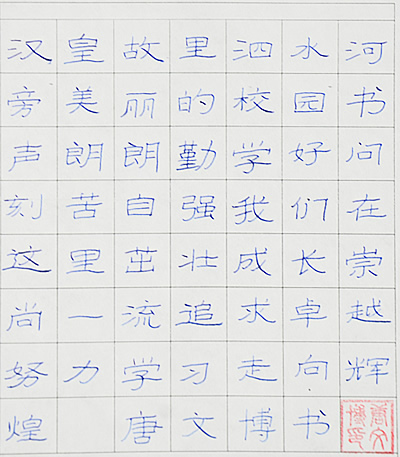 汉皇故里泗水河
旁美丽的校园书
声朗朗勤学好问
刻苦自强我们在
这里茁壮成长崇
尚一流追求卓越
努力学习走向辉
煌 唐文博书
唐文博印